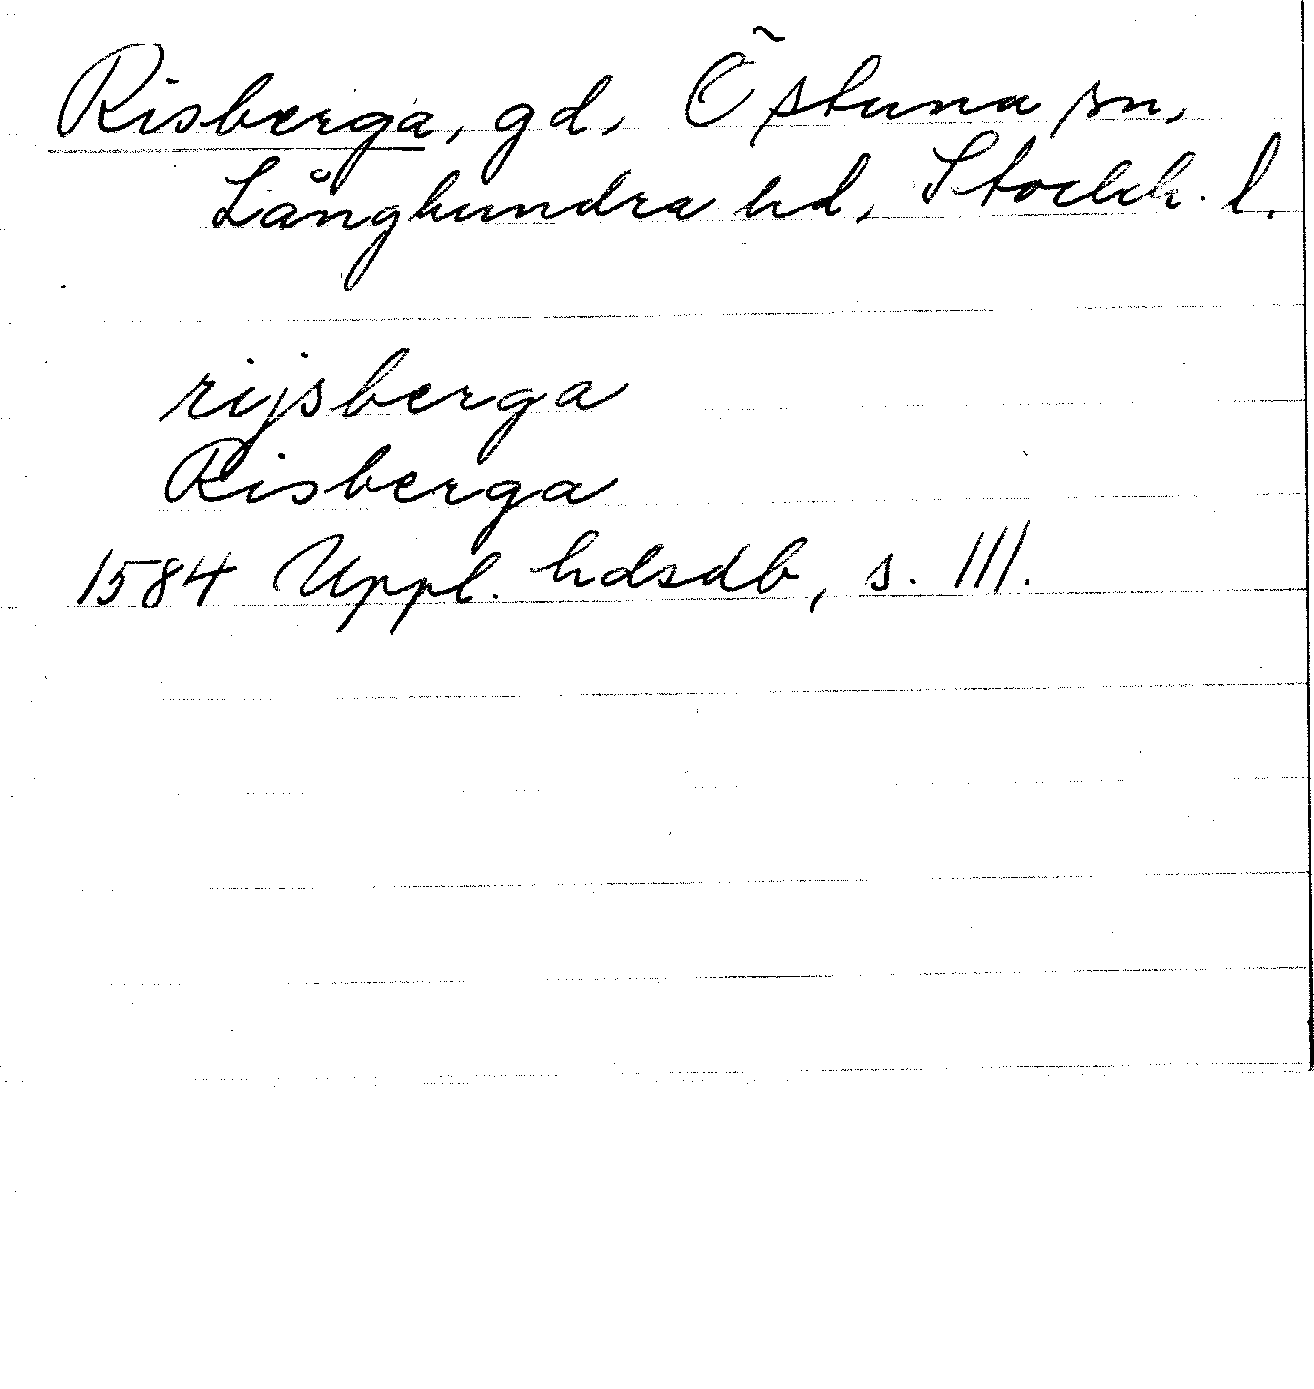 Risberga, gd, Östuna sn,
Långhundra hd, Stockh. l.
rijsberga
Risberga
1584 Uppl. hdsdb, s. 111.